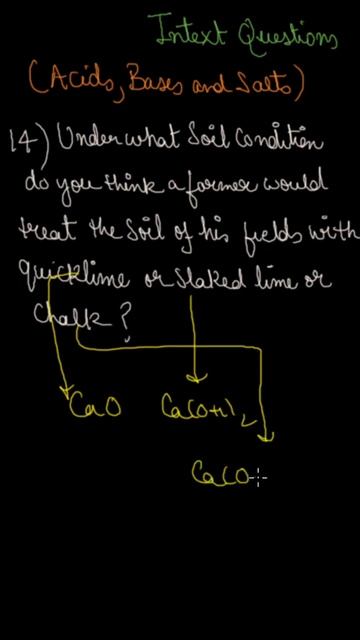 Intext Questions
(Acids, Bases and Salts)
14) Under what Soil Condition
do you think a farmer would
treat the soil of his fields with
quicklime or slaked lime or
chalk?
CaO Ca(OH)2
CaCO